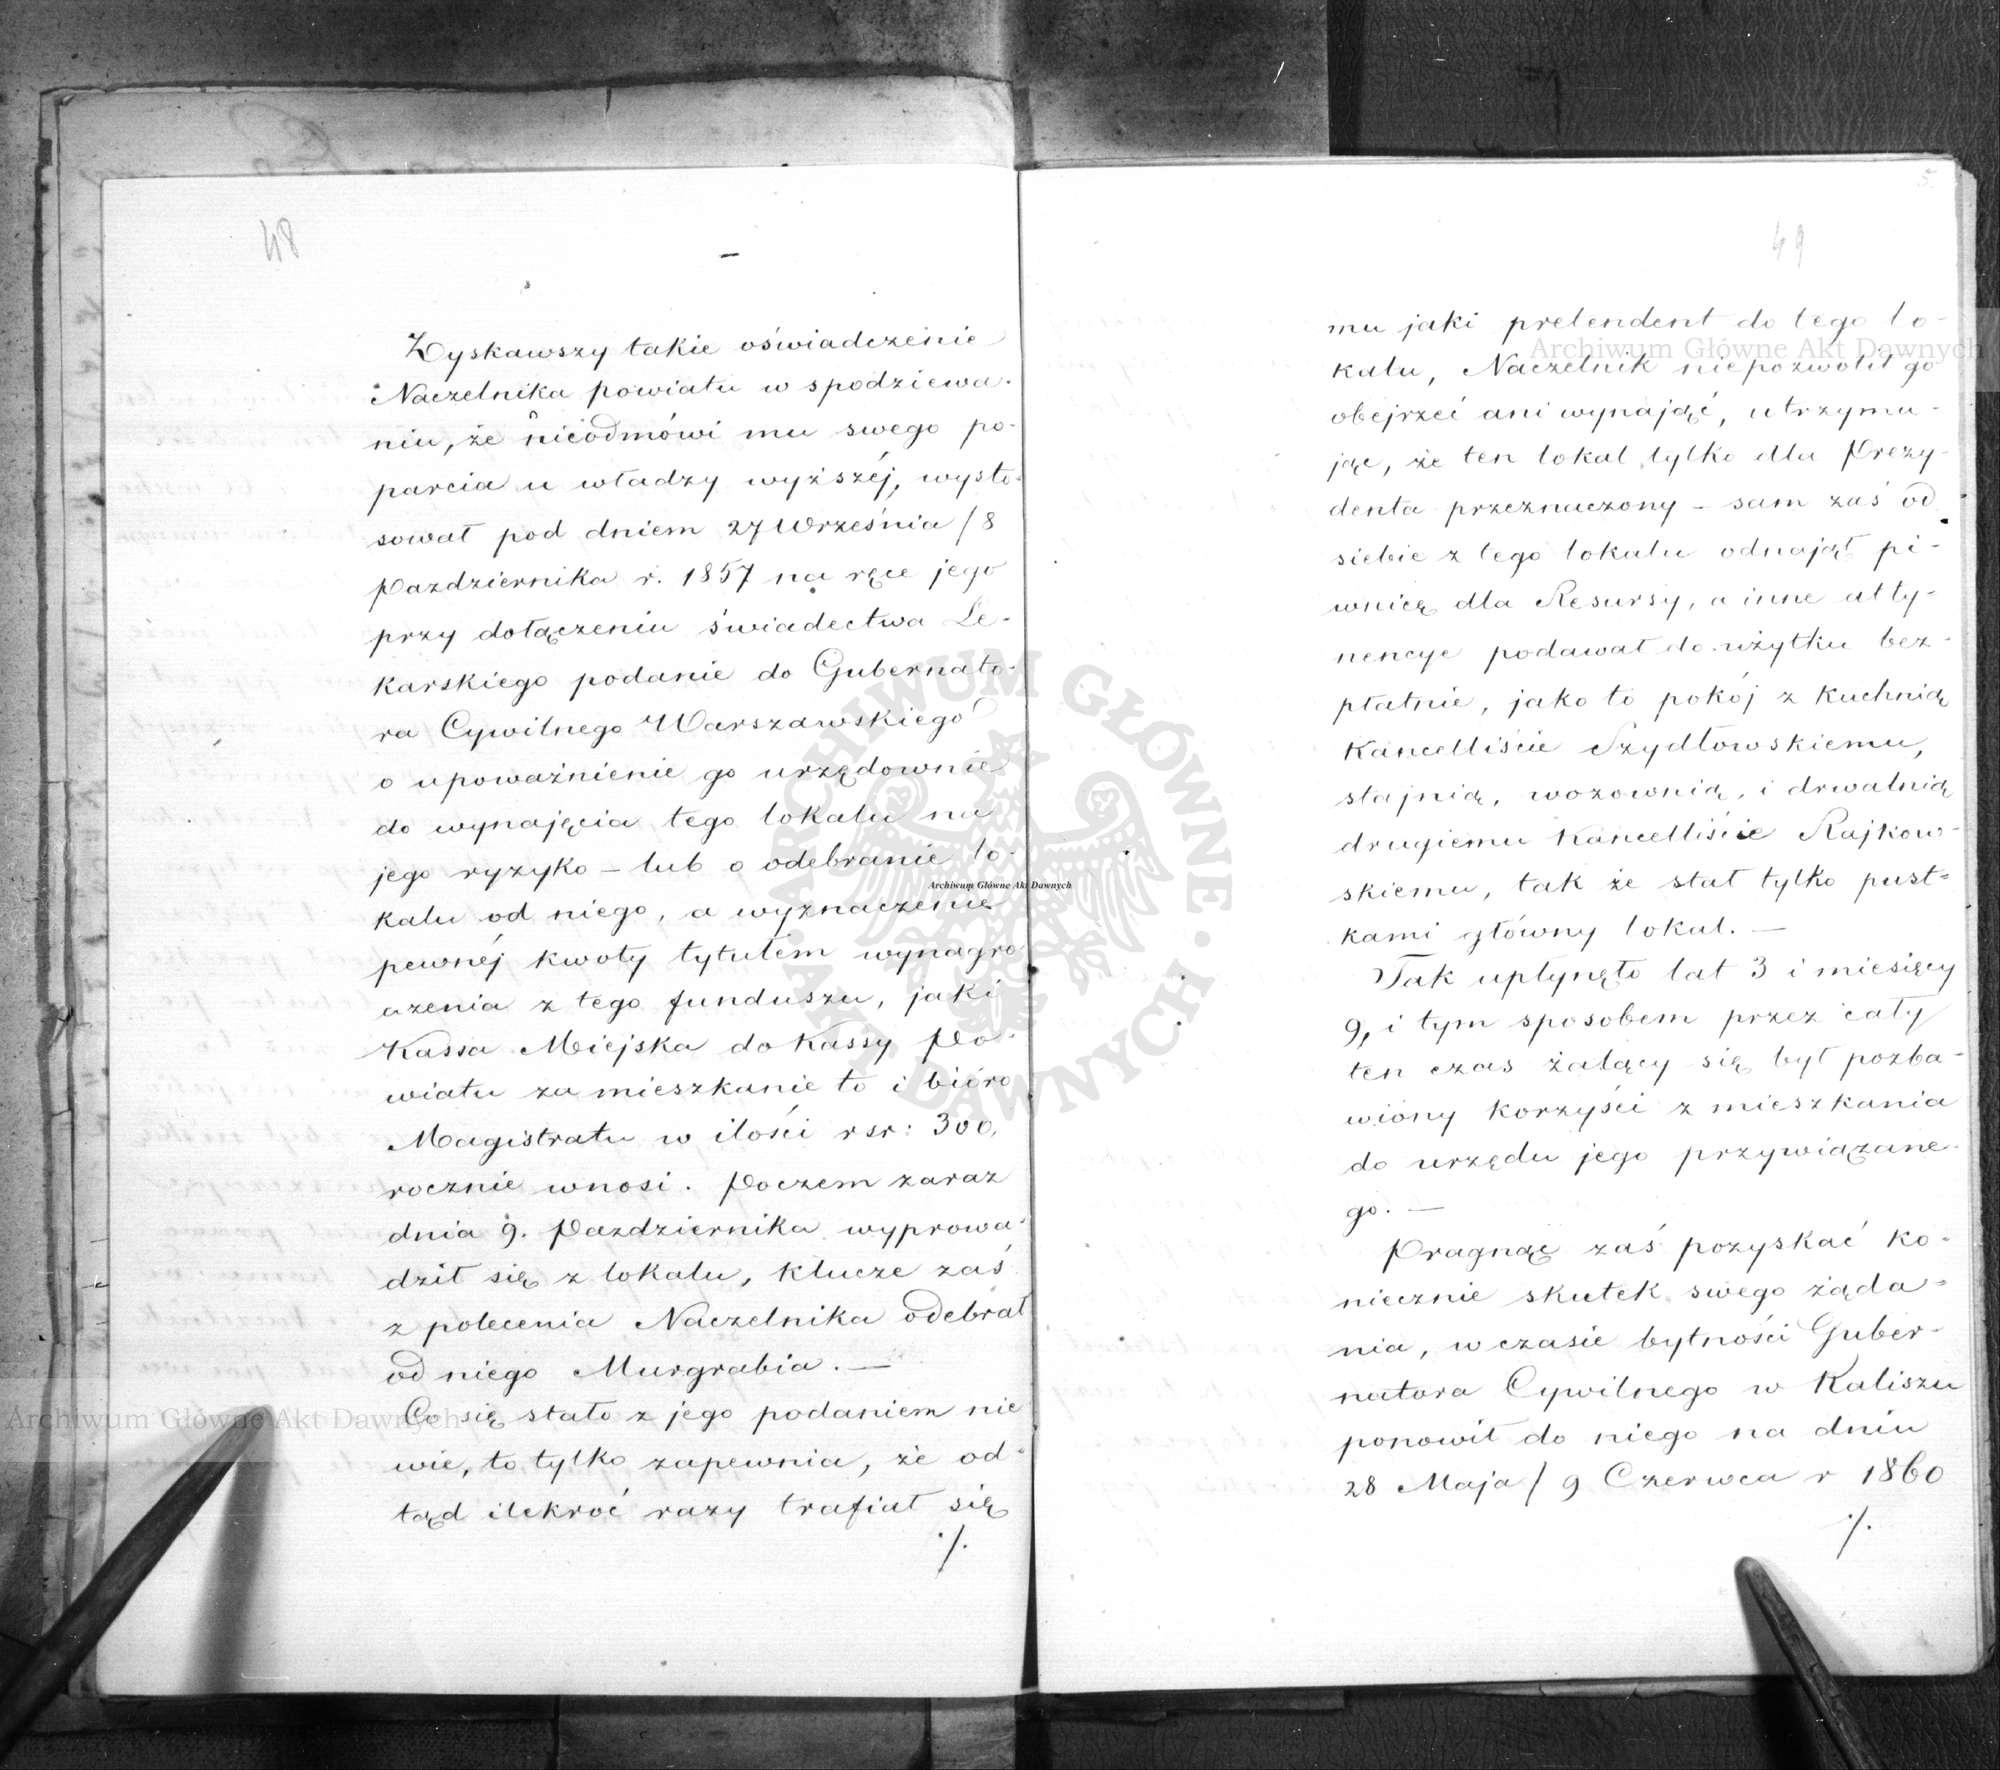 48
Zyskawszy takie oświadczenie
Naczelnika powiatu w spodziewa-
niu, że nieodmówi mu swego po-
parcia u władzy wyższéj, wysto-
sował pod dniem 27 Września / 8
Pazdziernika r. 1857 na ręce jego
przy dołączeniu świadectwa Le-
karskiego podanie do Gubernato-
ra Cywilnego Warszawskiego
o upoważnienie go urzędownie
do wynajęcia tego lokalu na
jego ryzyko – lub o odebranie lo-
kalu od niego, a wyznaczenie
pewnéj kwoty tytułem wynagro
dzenia z tego funduszu, jaki
Kassa Miejska do Kassy Po-
wiatu za mieszkanie to i bióro
Magistratu w ilości rsr: 300.
rocznie wnosi. Poczem zaraz
dnia 9. Pazdziernika wyprowa-
dził się z lokalu, klucze zaś
z polecenia Naczelnika odebrał
od niego Murgrabia. —
Co się stało z jego podaniem nie
wie, to tylko zapewnia, że od-
tąd ilekroć razy trafiał się
./.
5
49
mu jaki pretendent do tego lo-
kalu, Naczelnik niepozwolił go
obejrzeć ani wynająć, utrzymu-
jąc, że ten lokal tylko dla Prezy-
denta przeznaczony – sam zaś od
siebie z tego lokalu odnajął pi-
wnicę dla Resursy, a inne atty-
nencye podawał do użytku bez-
płatnie, jako to pokój z kuchnią
Kancelliście Szydłowskiemu,
stajnią, wozownią, i drwalnią
drugiemu Kancelliście Rajkow-
skiemu, tak że stał tylko pust=
kami główny lokal. —
Tak upłynęło lat 3 i miesięcy
9, i tym sposobem przez cały
ten czas żalący się był pozba-
wiony korzyści z mieszkania
do urzędu jego przywiązane-
go. —
Pragnąc zaś pozyskać ko-
niecznie skutek swego żąda-
nia, w czasie bytności Guber-
natora Cywilnego w Kaliszu
ponowił do niego na dniu
28 Maja / 9 Czerwca r 1860
./.
Archiwum Główne Akt Dawnych
Archiwum Główne Akt Dawnych
Archiwum Główne Akt Dawnych
ARCHIWUM GŁÓWNE AKT DAWNYCH